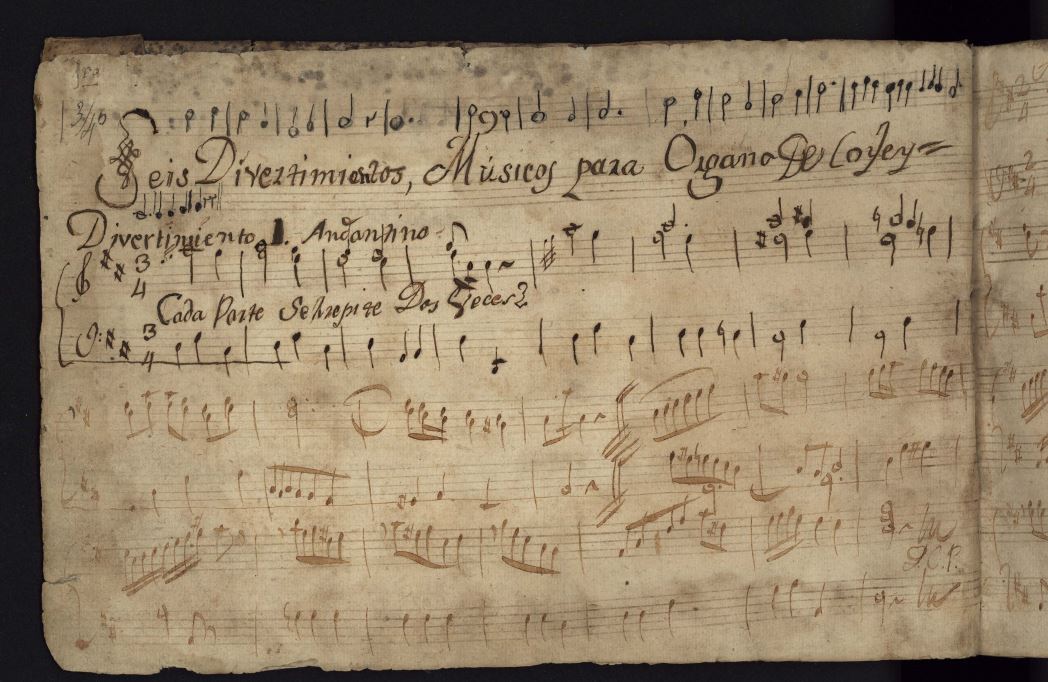 3/4
Seis Divertimientos, Músicos para Organo De Coyey=
Divertimiento 1. Andantino
3
4
Cada Parte Se repite Dos Veces
3
4
D.C.P.
2
4
2
4